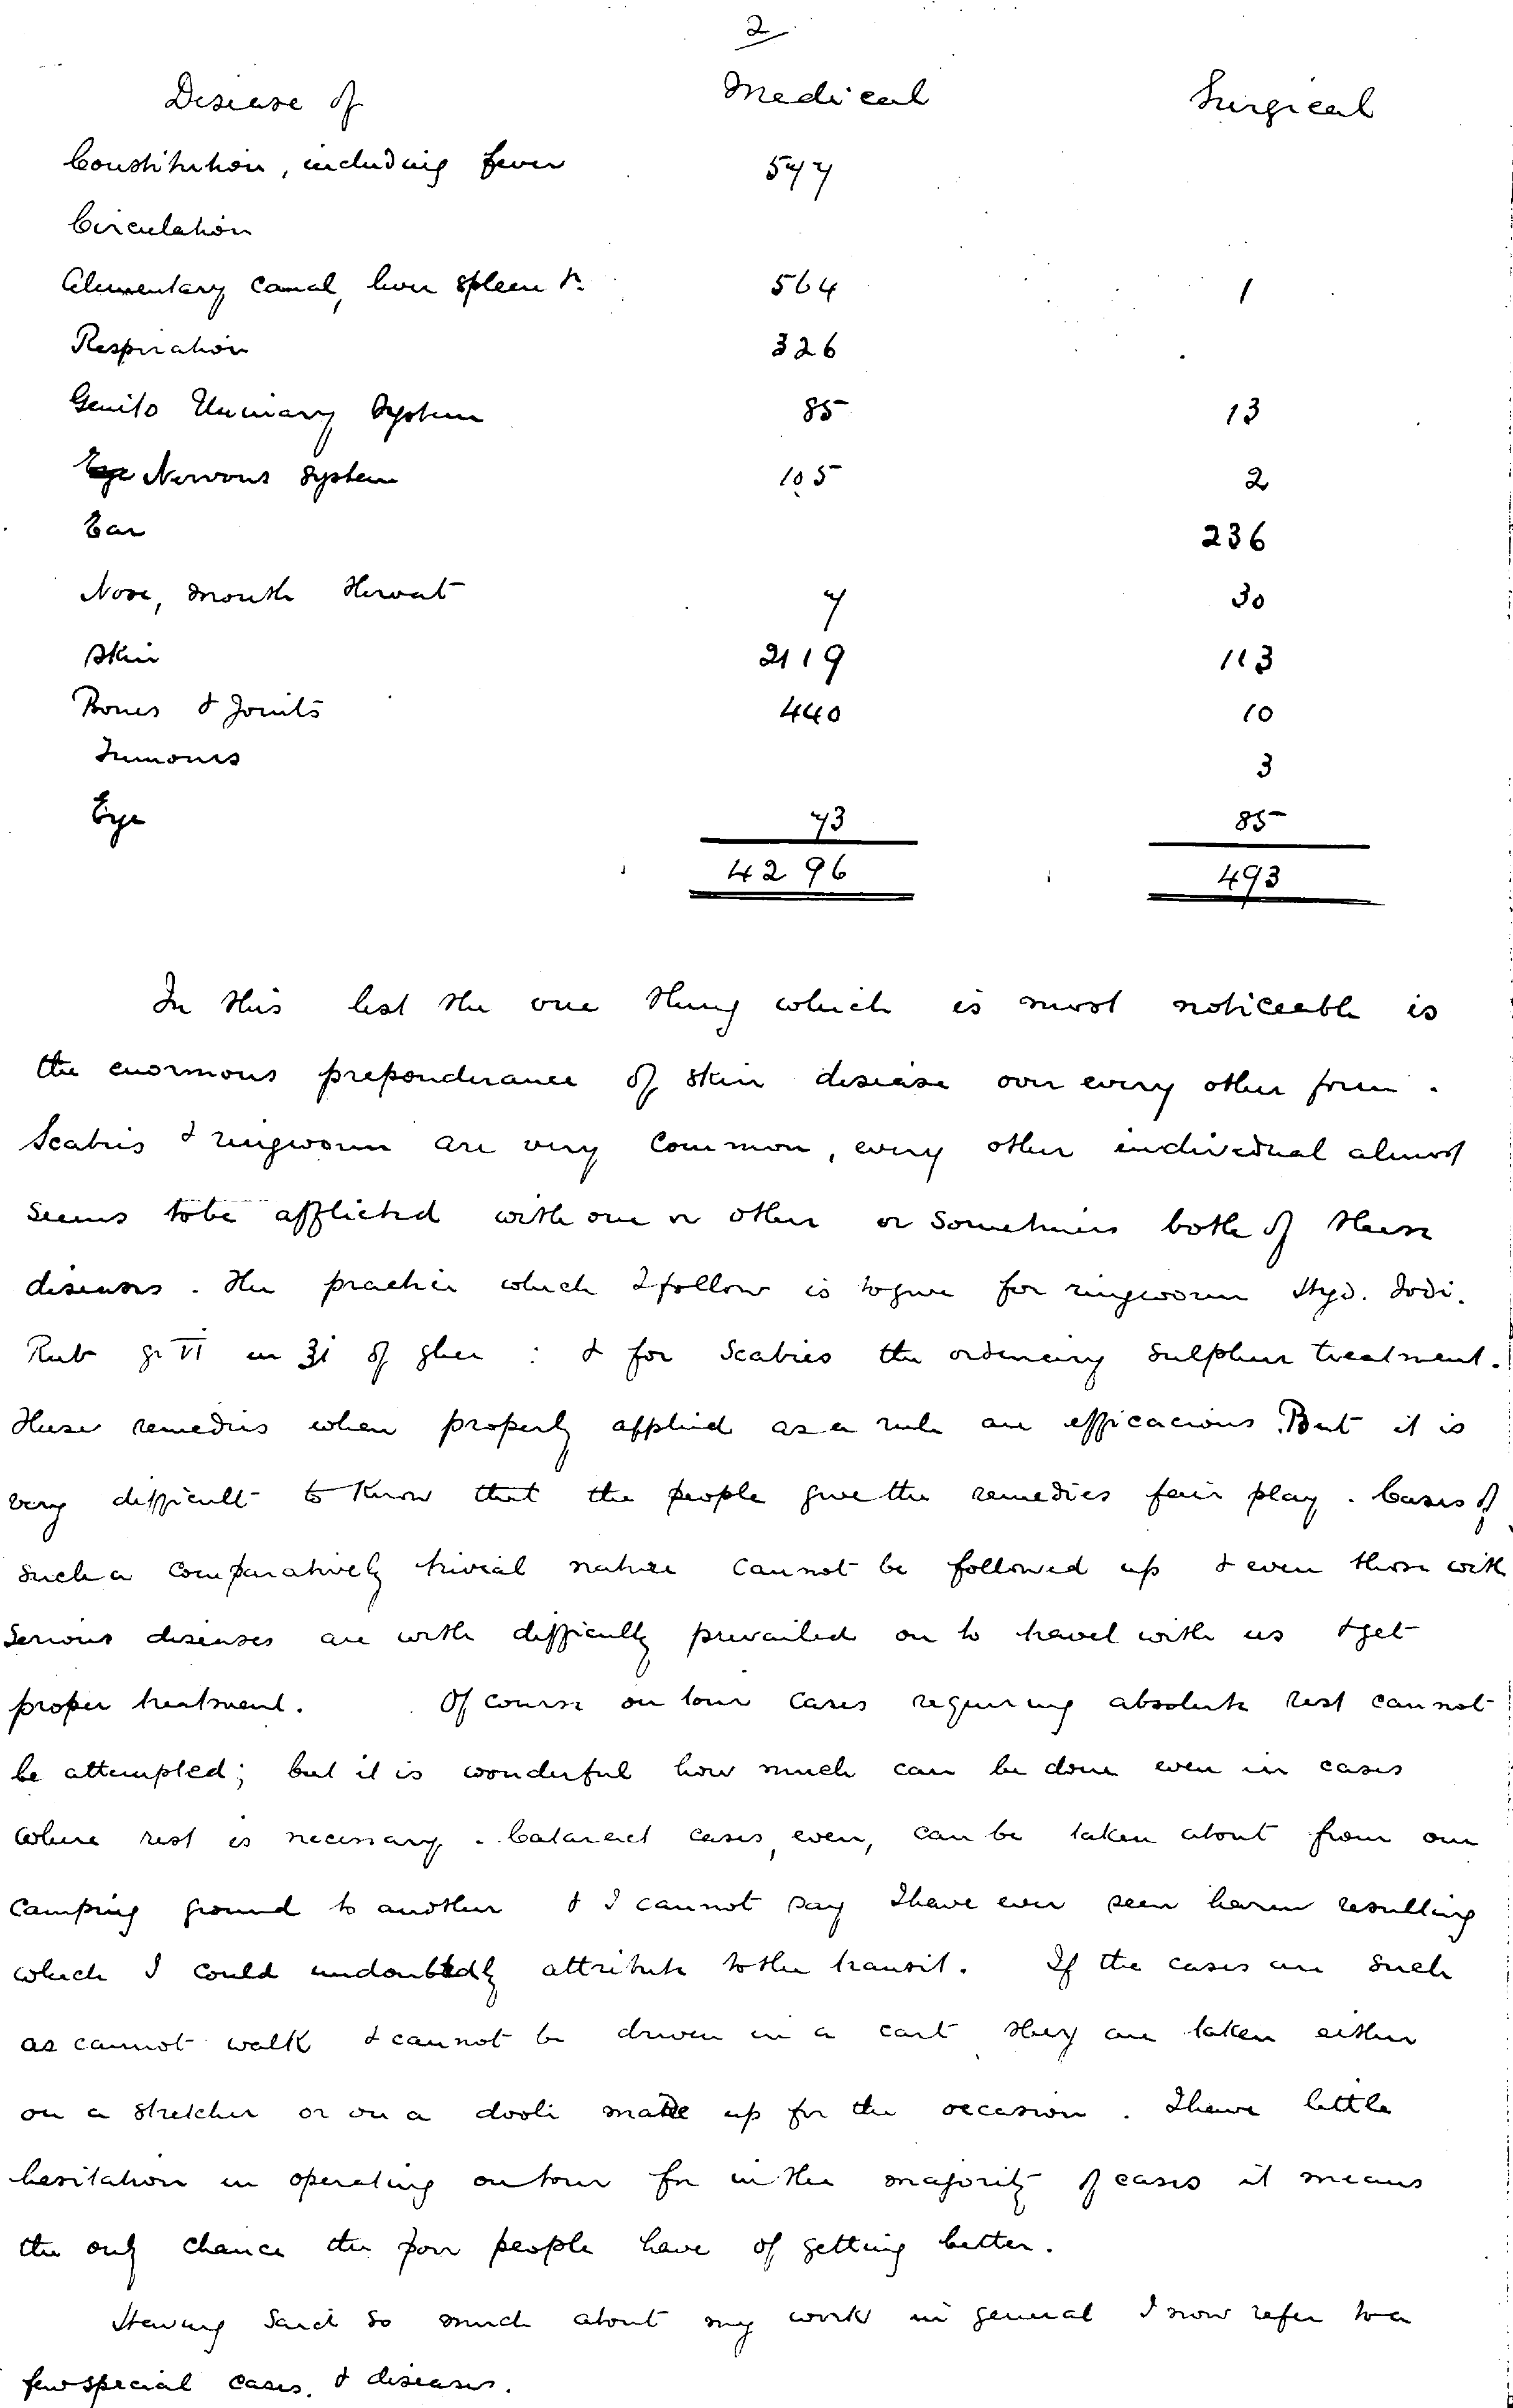 2
Disease of Medical Surgical
Constitution, including fever 577
Circulation
Alimentary Canal, liver spleen &c 564 1
Respiration 326
Genito Urinary System 85 13
Nervous System 105 2
Ear 236
Nose, mouth throat 7 30
Skin 2119 113
Bones & Joints 440 10
Tumours 3
Eye 73 85
4296 493
In this list the one thing which is most noticeable is
the enormous preponderance of skin disease over every other form.
Scabies & ringworm are very common, every other individual almost
seems to be afflicted with one or other or sometimes both of these
diseases. The practice which I follow is to give for ringworm Hyd. Iodi.
Rub gr VI in ʒi of ghee : & for Scabies the ordinary sulphur treatment.
These remedies when properly applied as a rule are efficacious. But it is
very difficult to know that the people give the remedies fair play. Cases of
such a comparatively trivial nature cannot be followed up & even those with
serious diseases are with difficulty prevailed on to travel with us & get
proper treatment. Of course on tour cases requiring absolute rest cannot
be attempted; but it is wonderful how much can be done even in cases
where rest is necessary. Cataract cases, even, can be taken about from one
camping ground to another & I cannot say I have ever seen harm resulting
which I could undoubtedly attribute to the transit. If the cases are such
as cannot walk & cannot be driven in a cart they are taken either
on a stretcher or on a dooli made up for the occasion. I have little
hesitation in operating on tour for in the majority of cases it means
the only chance the poor people have of getting better.
Having said so much about my work in general I now refer to a
few special cases, & diseases.